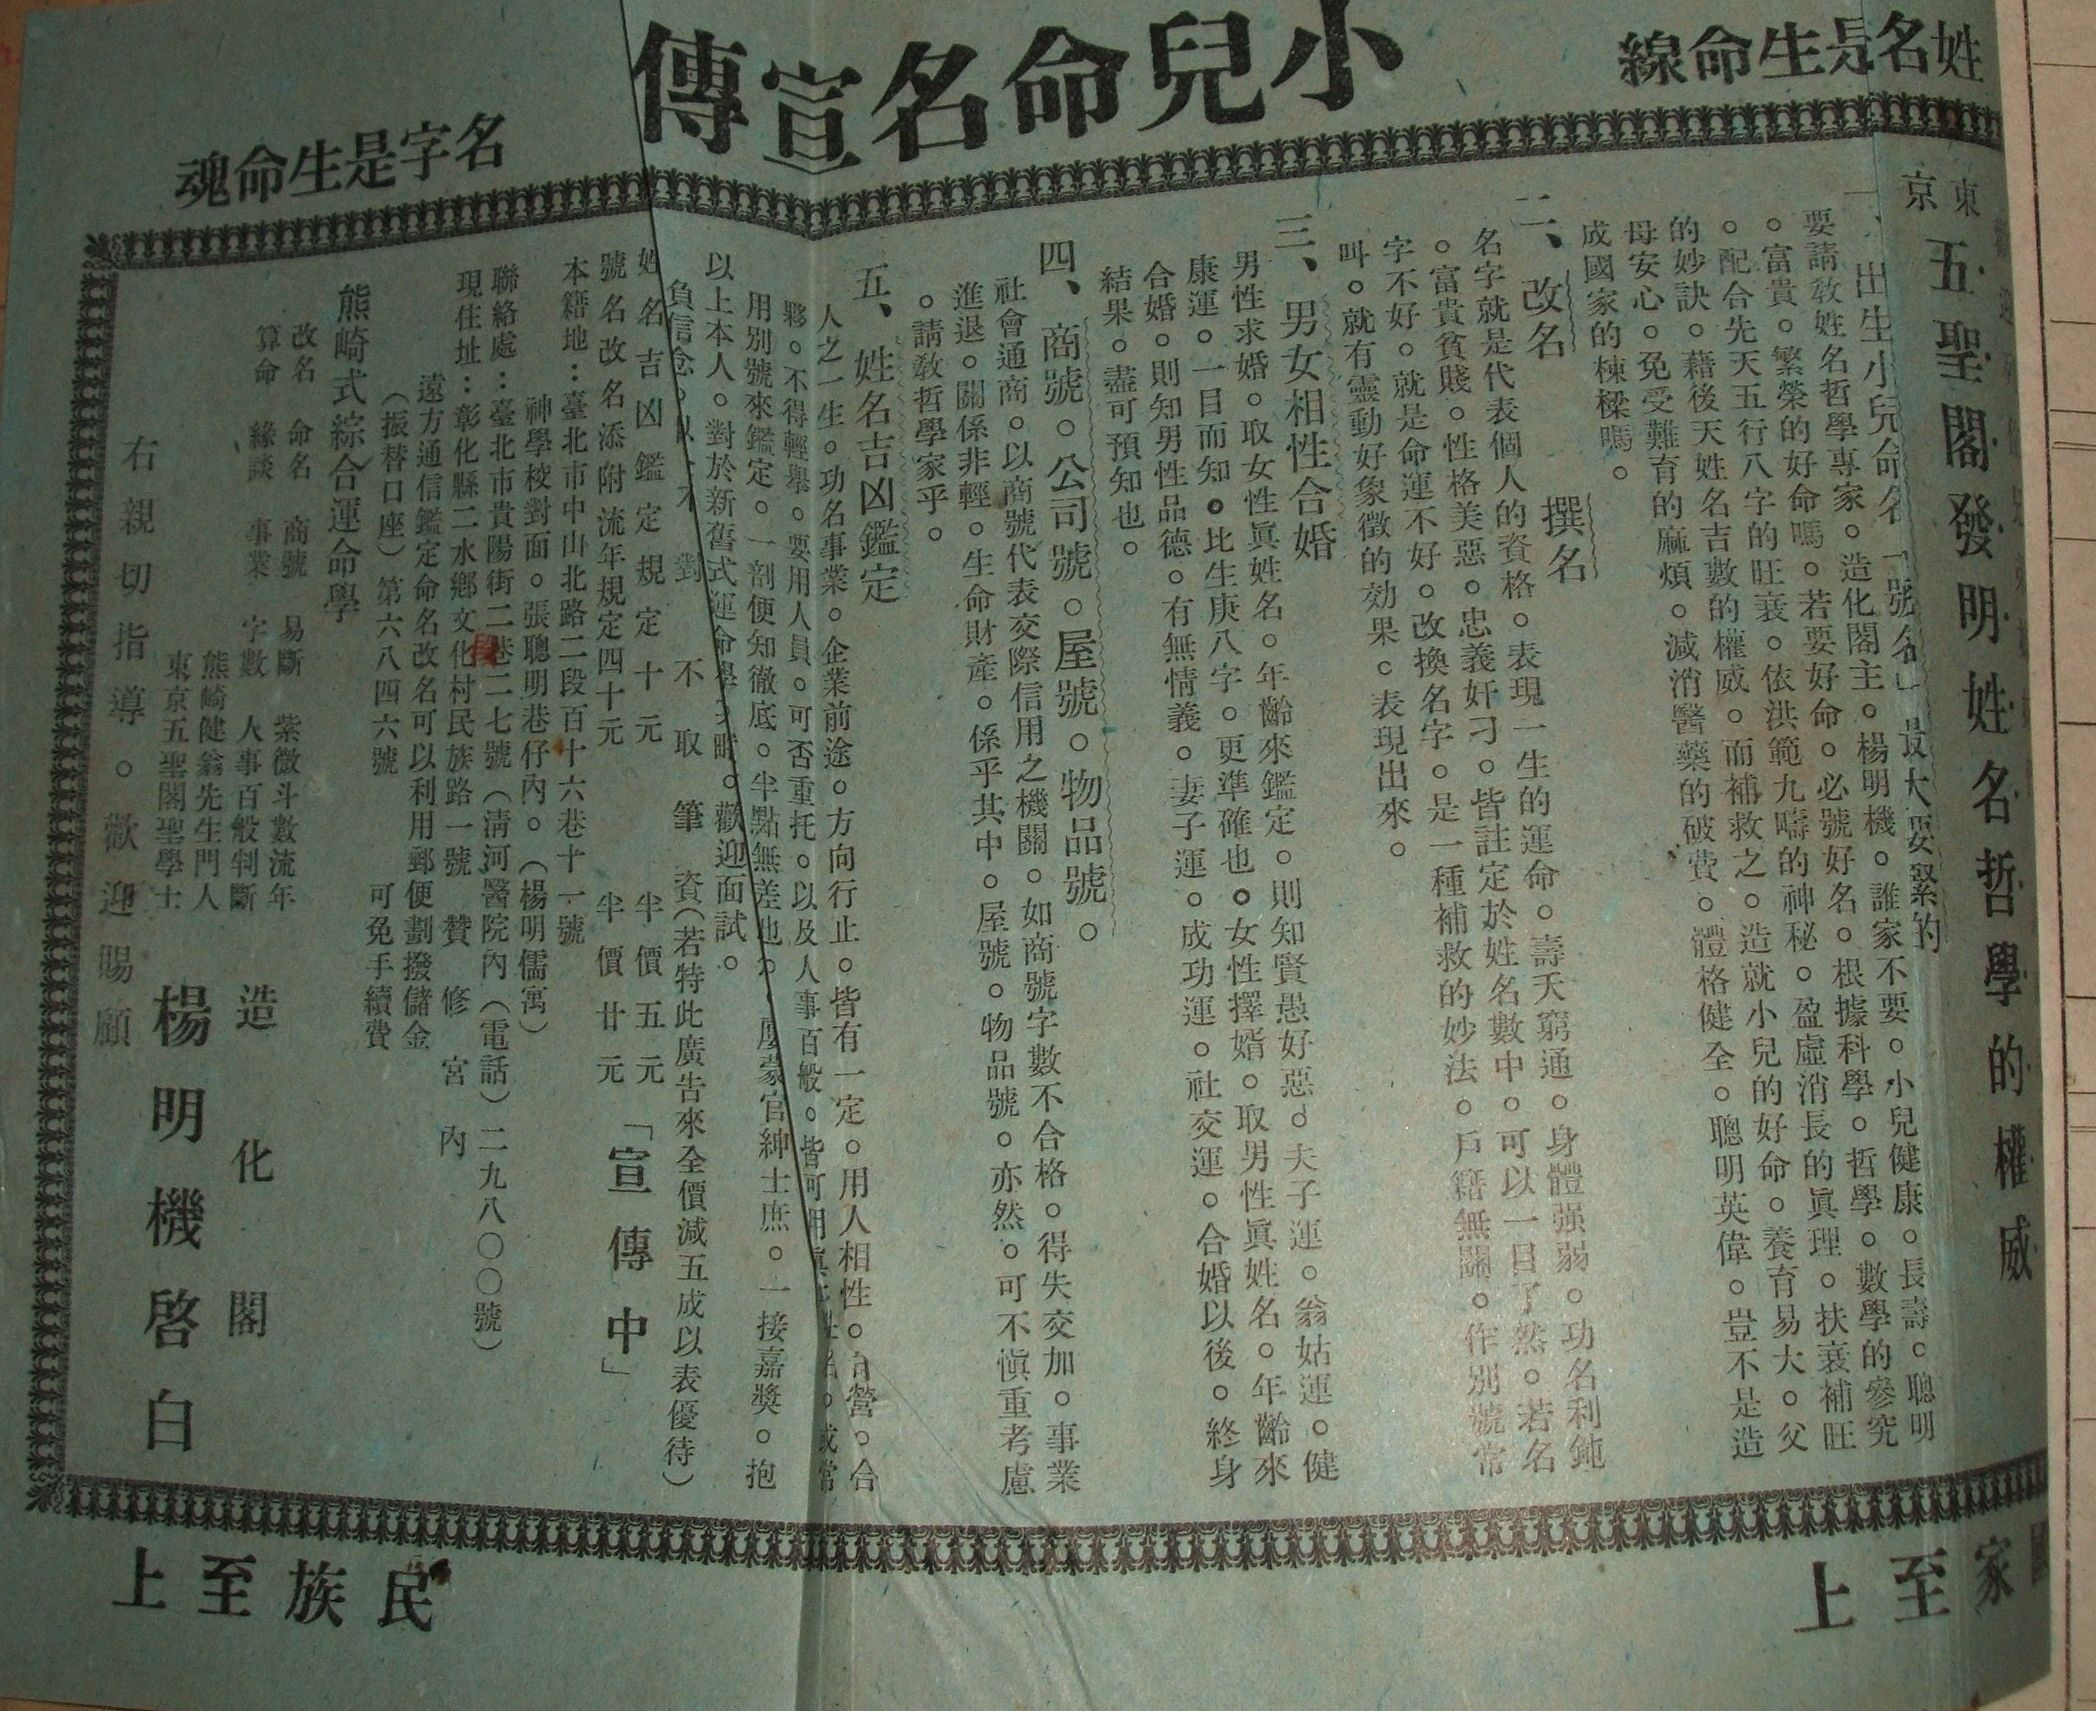 小兒命名宣傳
姓名是生命線
名字是生命魂
東京五聖閣發明姓名哲學的權威
一、出生小兒命名「號名」最大要緊的
要請教姓名哲學專家。造化閣主。楊明機。誰家不要。小兒健康。長壽。聰明
。富貴。繁榮的好命嗎。若要好命。必號好名。根據科學。哲學。數學的參究
。配合先天五行八字的旺衰。依洪範九疇的神秘。盈虛消長的眞理。扶衰補旺
的妙訣。藉後天姓名吉數的權威。而補救之。造就小兒的好命。養育易大。父
母安心。免受難育的麻煩。減消醫藥的破費。體格健全。聰明英偉。豈不是造
成國家的棟樑嗎。
二、改名 撰名
名字就是代表個人的資格。表現一生的運命。壽夭窮通。身體强弱。功名利鈍
。富貴貧賤。性格美惡。忠義奸刁。皆註定於姓名數中。可以一目了然。若名
字不好。就是命運不好。改換名字。是一種補救的妙法。戶籍無關。作別號常
叫。就有靈動好象徵的効果。表現出來。
三、男女相性合婚
男性求婚。取女性眞姓名。年齡來鑑定。則知賢愚好惡。夫子運。翁姑運。健
康運。一目而知。比生庚八字。更準確也。女性擇婿。取男性眞姓名。年齡來
合婚。則知男性品德。有無情義。妻子運。成功運。社交運。合婚以後。終身
結果。盡可預知也。
四、商號。公司號。屋號。物品號。
社會通商。以商號代表交際信用之機關。如商號字數不合格。得失交加。事業
進退。關係非輕。生命財產。係乎其中。屋號。物品號。亦然。可不愼重考慮
。請教哲學家乎。
五、姓名吉凶鑑定
人之一生。功名事業。企業前途。方向行止。皆有一定。用人相性。營。合
夥。不得輕舉。要用人員。可否重托。以及人事百般。皆可用眞。或當
用別號來鑑定。一剖便知徹底。半點無差也。屢蒙官紳士庶。一接嘉獎。抱
以上本人。對於新舊式運命學。歡迎面試。
負信念。以不對不取筆資（若特此廣告來全價減五成以表優待）
姓名吉凶鑑定規定十元 半價五元
號名改名添附流年規定四十元 半價廿元 「宣傳中」
本籍地：臺北市中山北路二段百十六巷十一號
神學校對面。張聰明巷仔內。（楊明儒寓）
聯絡處：臺北市貴陽街二段二巷二七號（清河醫院內（電話）二九八〇〇號）
現住址：彰化縣二水鄉文化村民族路一號 贊修宮內
遠方通信鑑定命名改名可以利用郵便劃撥儲金
（振替口座）第六八四六號 可免手續費
熊崎式綜合運命學
改名 命名 商號 易斷 紫微斗數流年
算命 緣談 事業 字數 人事百般判斷
熊崎健翁先生門人
東京五聖閣聖學士
造化閣
楊明機啓白
右親切指導。歡迎賜顧
國家至上
民族至上